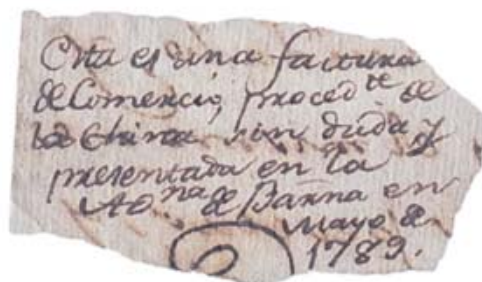 Esta es una factura
de Comercio, proced.te de
la China sin duda y
presentada en la
Ad.na de Barña en
Mayo de
1789.